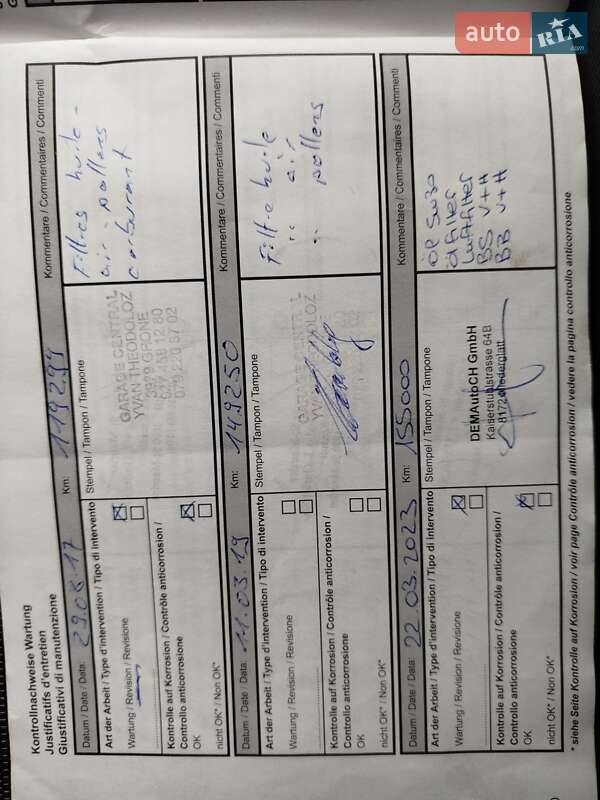 auto RIA.com
Kontrollnachweise Wartung
Justificatifs d'entretien
Giustificativi di manutenzione
Datum / Date / Data: 29.08.17 Km: 119294 Kommentare / Commentaires / Commenti
Art der Arbeit / Type d'intervention / Tipo di intervento
Wartung / Revision / Revisione
Kontrolle auf Korrosion / Contrôle anticorrosion /
Controllo anticorrosione
OK
nicht OK* / Non OK*
Stempel / Tampon / Tampone
GARAGE CENTRAL
YVAN THEODOLOZ
3979 GRÔNE
Filtres huile -
air - pollens
carburant
Datum / Date / Data: 11.03.19 Km: 149250 Kommentare / Commentaires / Commenti
Art der Arbeit / Type d'intervention / Tipo di intervento
Wartung / Revision / Revisione
Kontrolle auf Korrosion / Contrôle anticorrosion /
Controllo anticorrosione
OK
nicht OK* / Non OK*
Stempel / Tampon / Tampone
Filtre huile
" air
" pollens
Datum / Date / Data: 22 03.2023 Km: 155000 Kommentare / Commentaires / Commenti
Art der Arbeit / Type d'intervention / Tipo di intervento
Wartung / Revision / Revisione
Kontrolle auf Korrosion / Contrôle anticorrosion /
Controllo anticorrosione
OK
nicht OK* / Non OK*
Stempel / Tampon / Tampone
DEMAutoCH GmbH
Kaiserstuhlstrasse 64B
8172 Niederglatt
Öl 5W30
Ölfilter
Luftfilter
BS V+H
BB V+H
* siehe Seite Kontrolle auf Korrosion / voir page Contrôle anticorrosion / vedere la pagina controllo anticorrosione